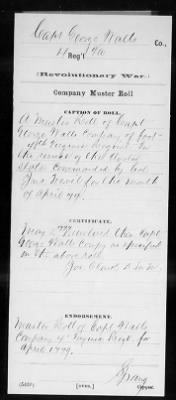 Capt George Walls Co.,
4 Reg't Va
(Revolutionary War.)
Company Muster Roll
CAPTION OF ROLL.
A Muster Roll of Capt
George Walls Company of foot
4th Virginia Regiment in
the service of the United
States commanded by Col
Jno. Nevill for the month
of April 79.
CERTIFICATE.
May 2 1779 Mustered then Capt
George Walls Company as specified
in the above roll
ENDORSEMENT.
Muster Roll of Capt Walls
Company 4 Virginia Regt. for
April 1779.